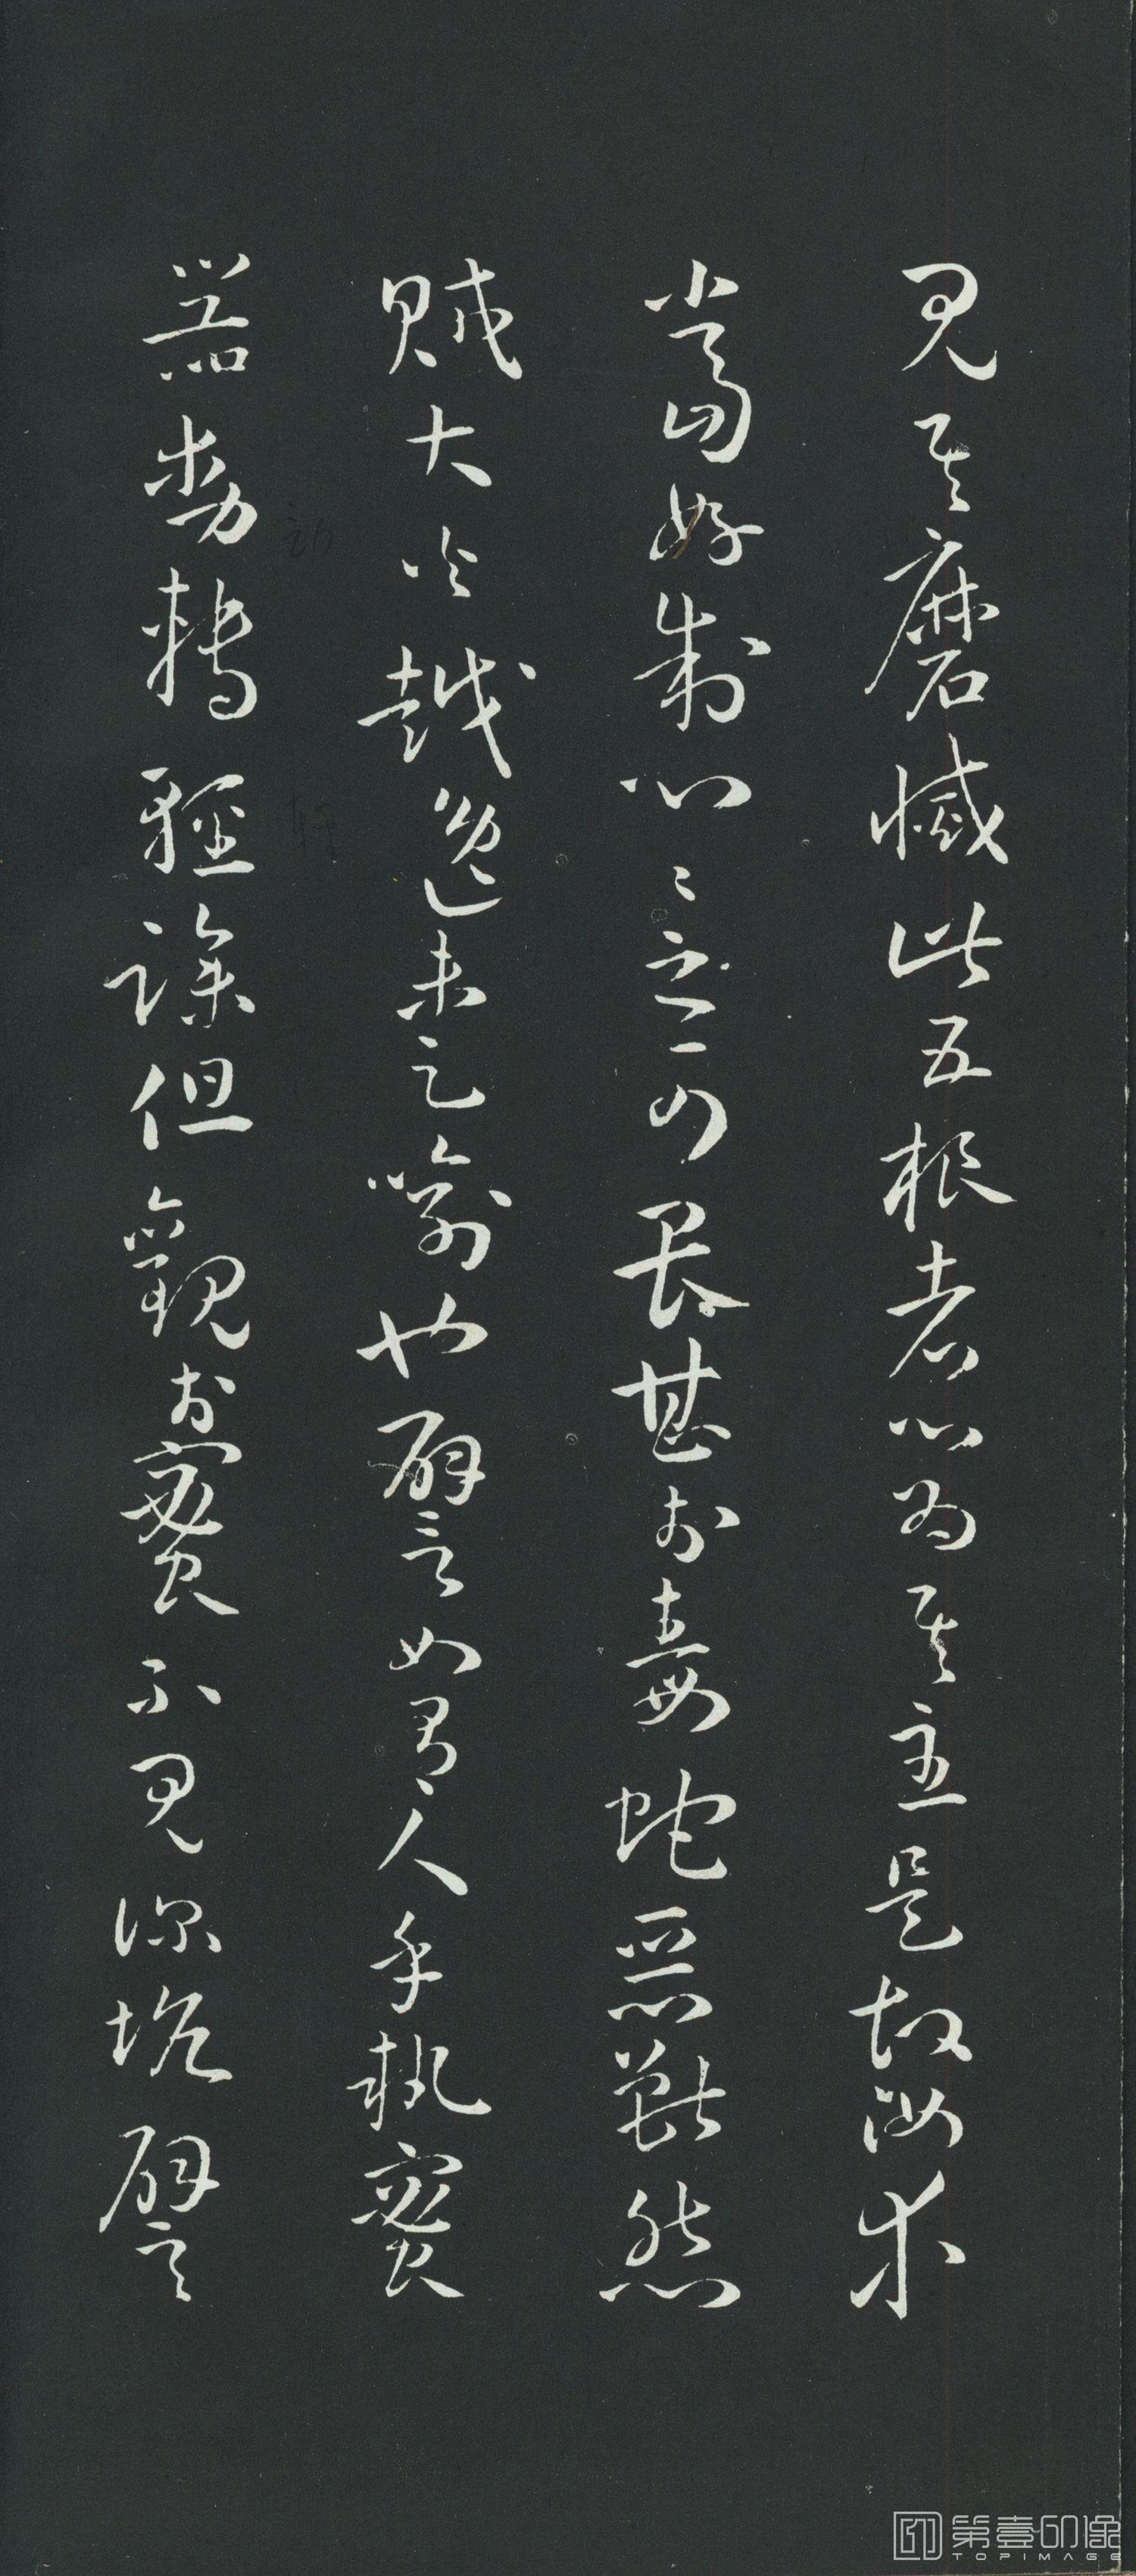 見其磨滅此五根者心為其主是故汝等
當好制心〻之可畏甚於毒蛇惡獸怨
賊大火越逸未足喻也譬如有人手執蜜
器動轉輕躁但觀於蜜不見深坑譬
第壹印像
TOPIMAGE